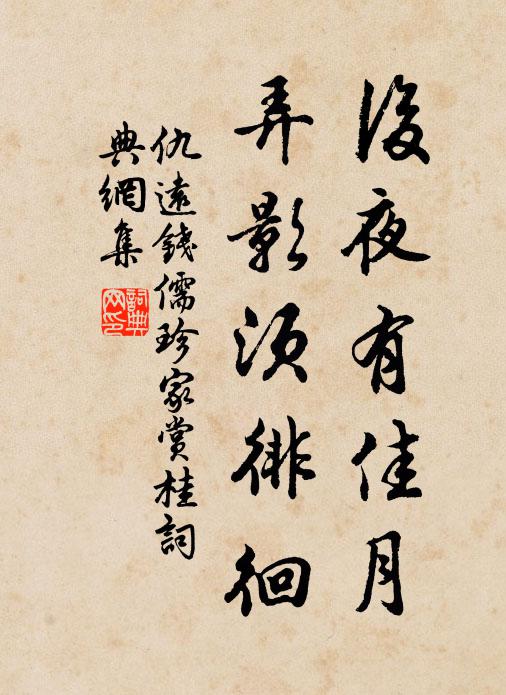 後夜有佳月
弄影須徘徊
仇遠錢儒珍家賞桂詞
典網集
詞典网印